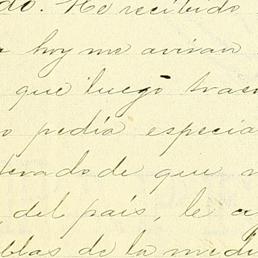 do. He recibido
hoy me avisan
que luego tras
pedía especia
terado de que
del país, le a
blas de la medi